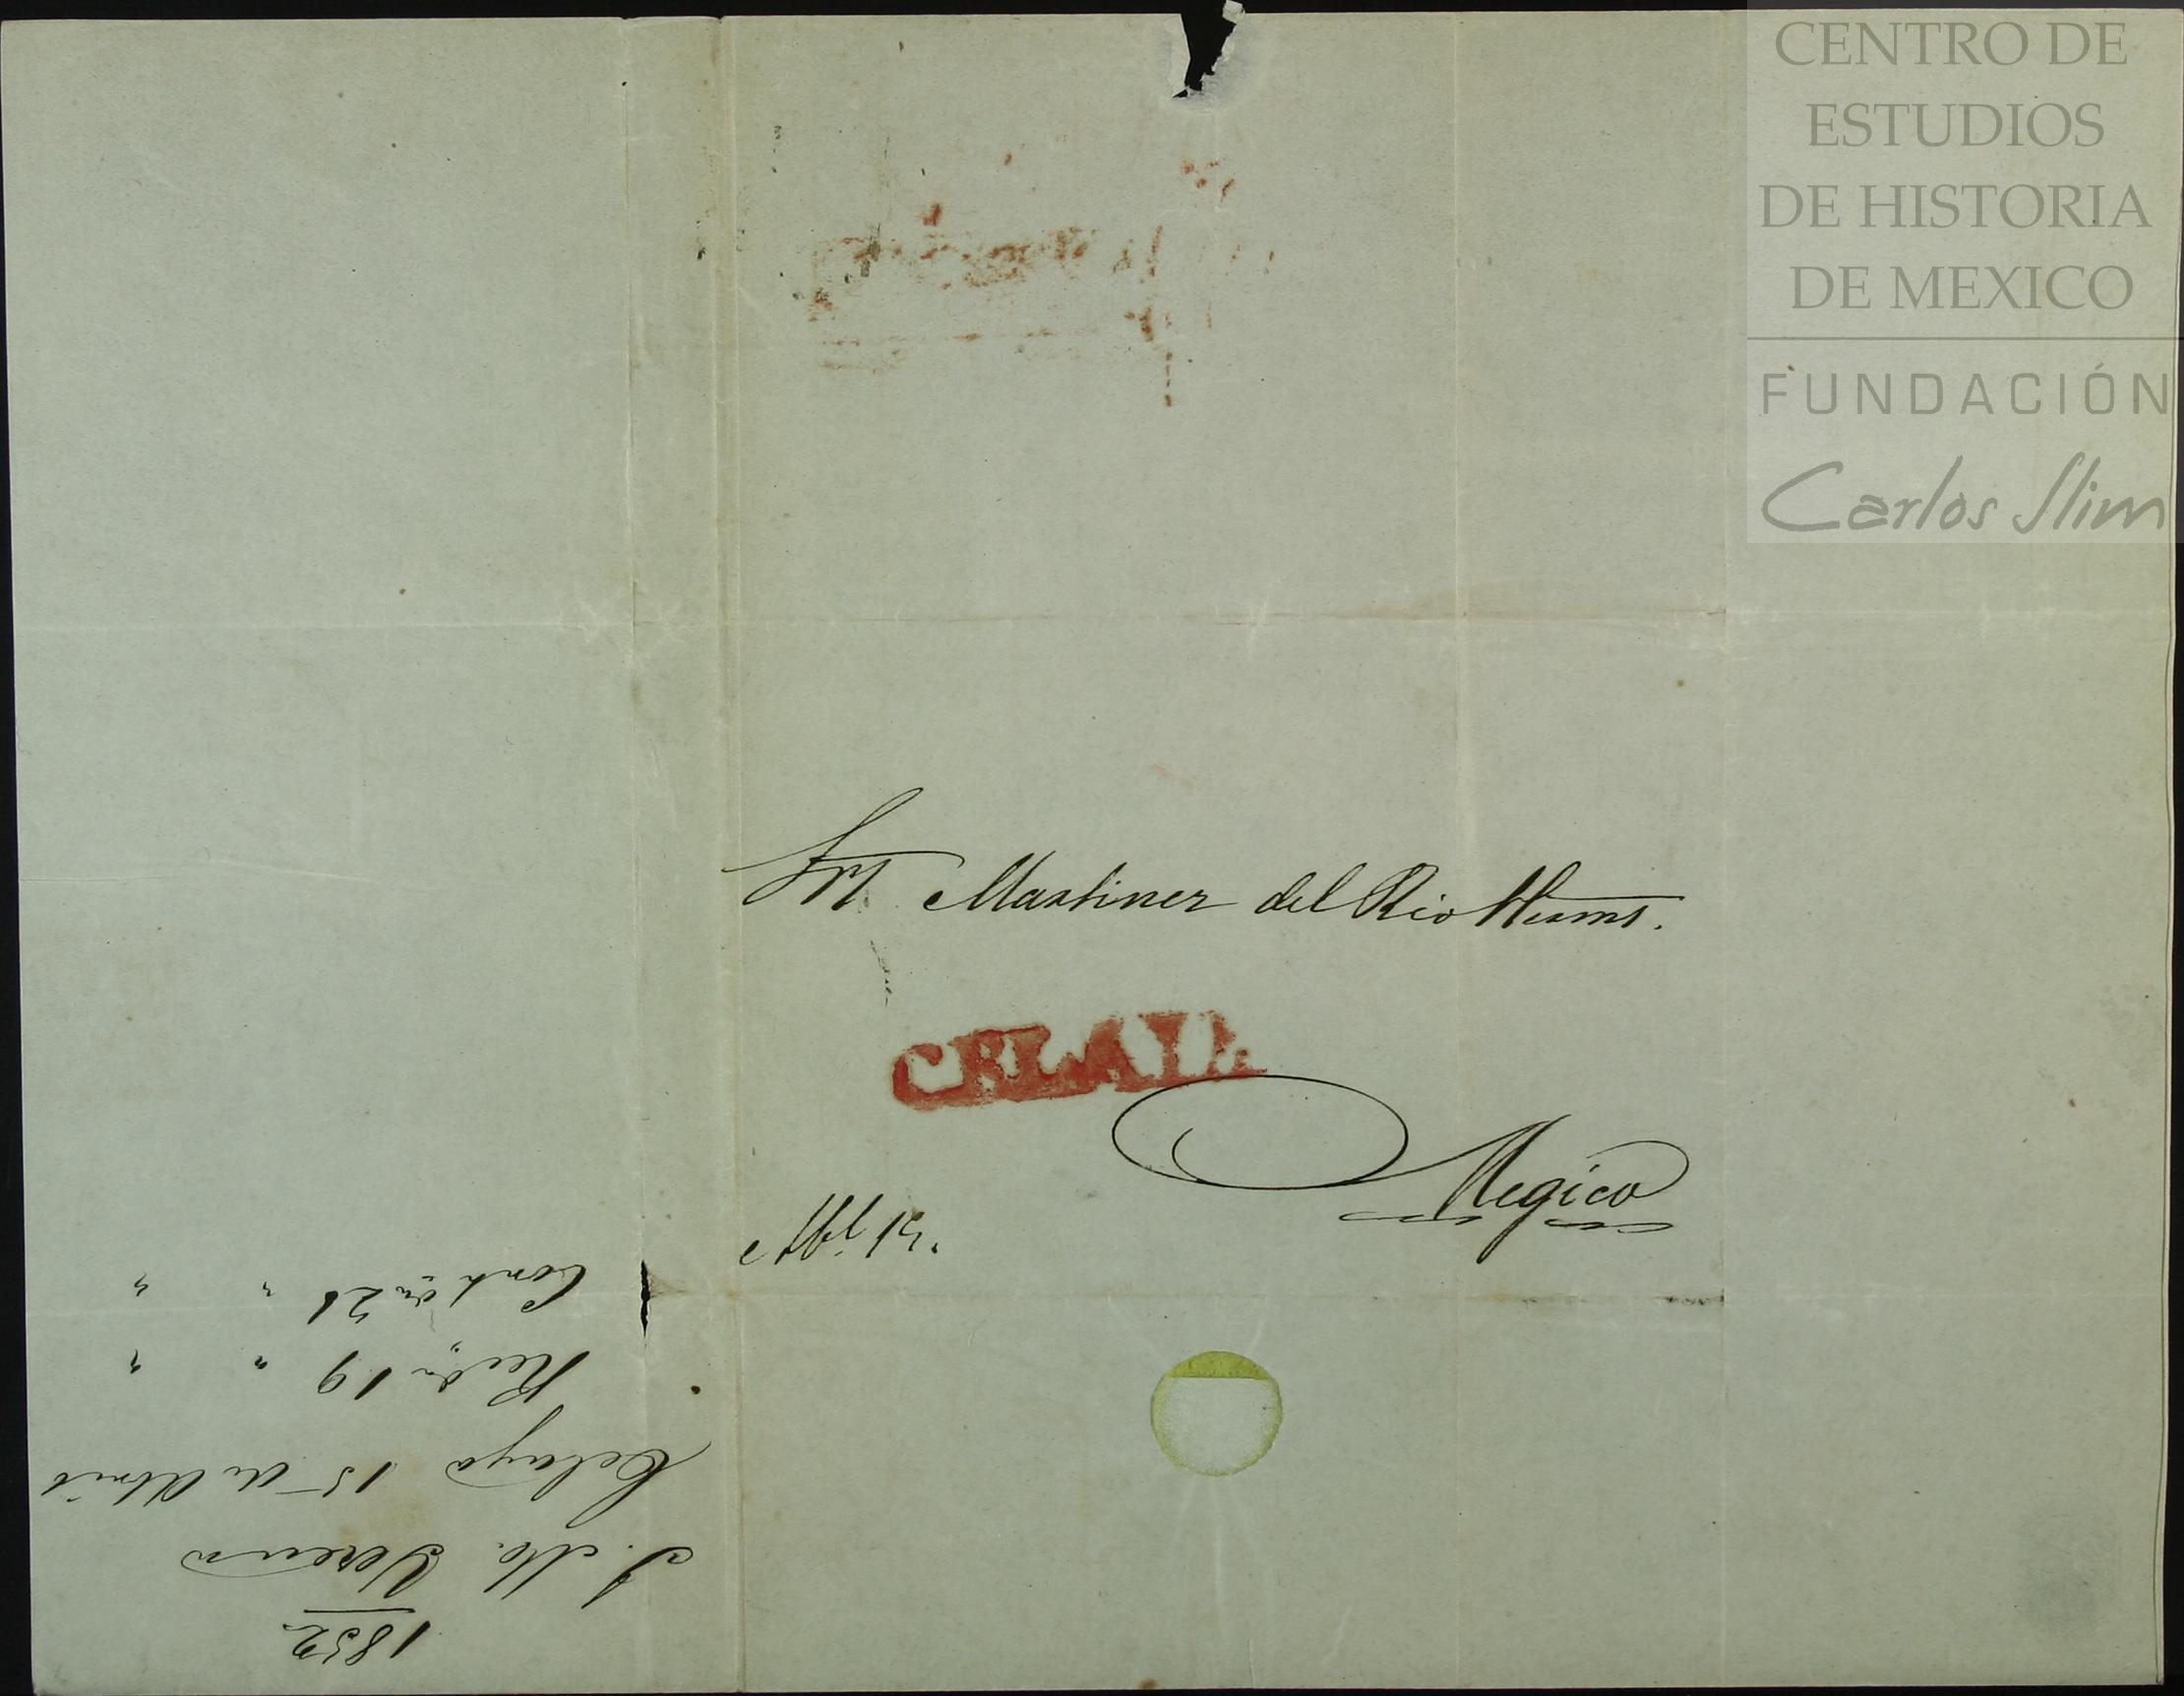 CENTRO DE
ESTUDIOS
DE HISTORIA
DE MEXICO
FUNDACIÓN
Carlos Slim
Srs Martinez del Rio Herms.
CELAYA
Megico
Abl. 15.
1852
J. Ma. Yerena
Celaya 15 de Abril
Recda 19 " "
Contda 21 " "